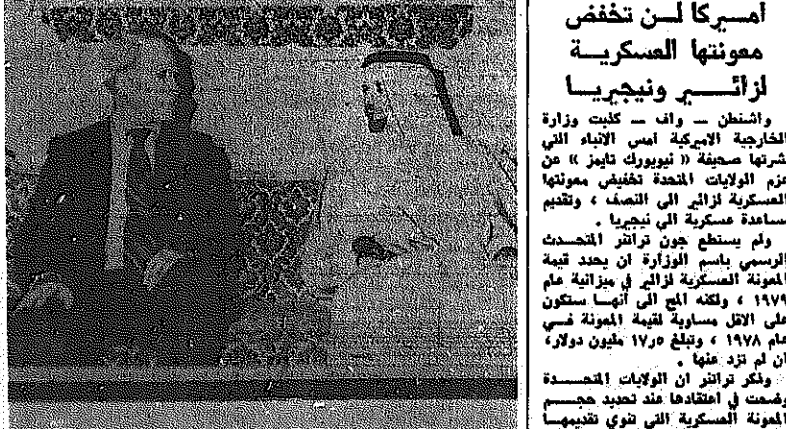 أمـيركا لـن تخفض
معونتها العسكريـة
لزائـــير ونيجيريـــا
واشنطن — واف — كذبت وزارة
الخارجية الاميركية امس الانباء التي
نشرتها صحيفة « نيويورك تايمز » عن
عزم الولايات المتحدة تخفيض معونتها
العسكرية لزائير الى النصف ، وتقديم
مساعدة عسكرية الى نيجيريا .
ولم يستطع جون تراتنر المتحـدث
الرسمي باسم الوزارة ان يحدد قيمة
المعونة العسكرية لزائير في ميزانية عام
١٩٧٩ ، ولكنه المح الى أنهـا ستكون
على الاقل مساوية لقيمة المعونة فـي
عام ١٩٧٨ ، وتبلغ ١٧٫٥ مليون دولار،
ان لم تزد عنها .
وذكر تراتنر ان الولايات المتحـدة
وضعت في اعتقادها عند تحديد حجـم
المعونة العسكرية التي تنوي تقديمهـا